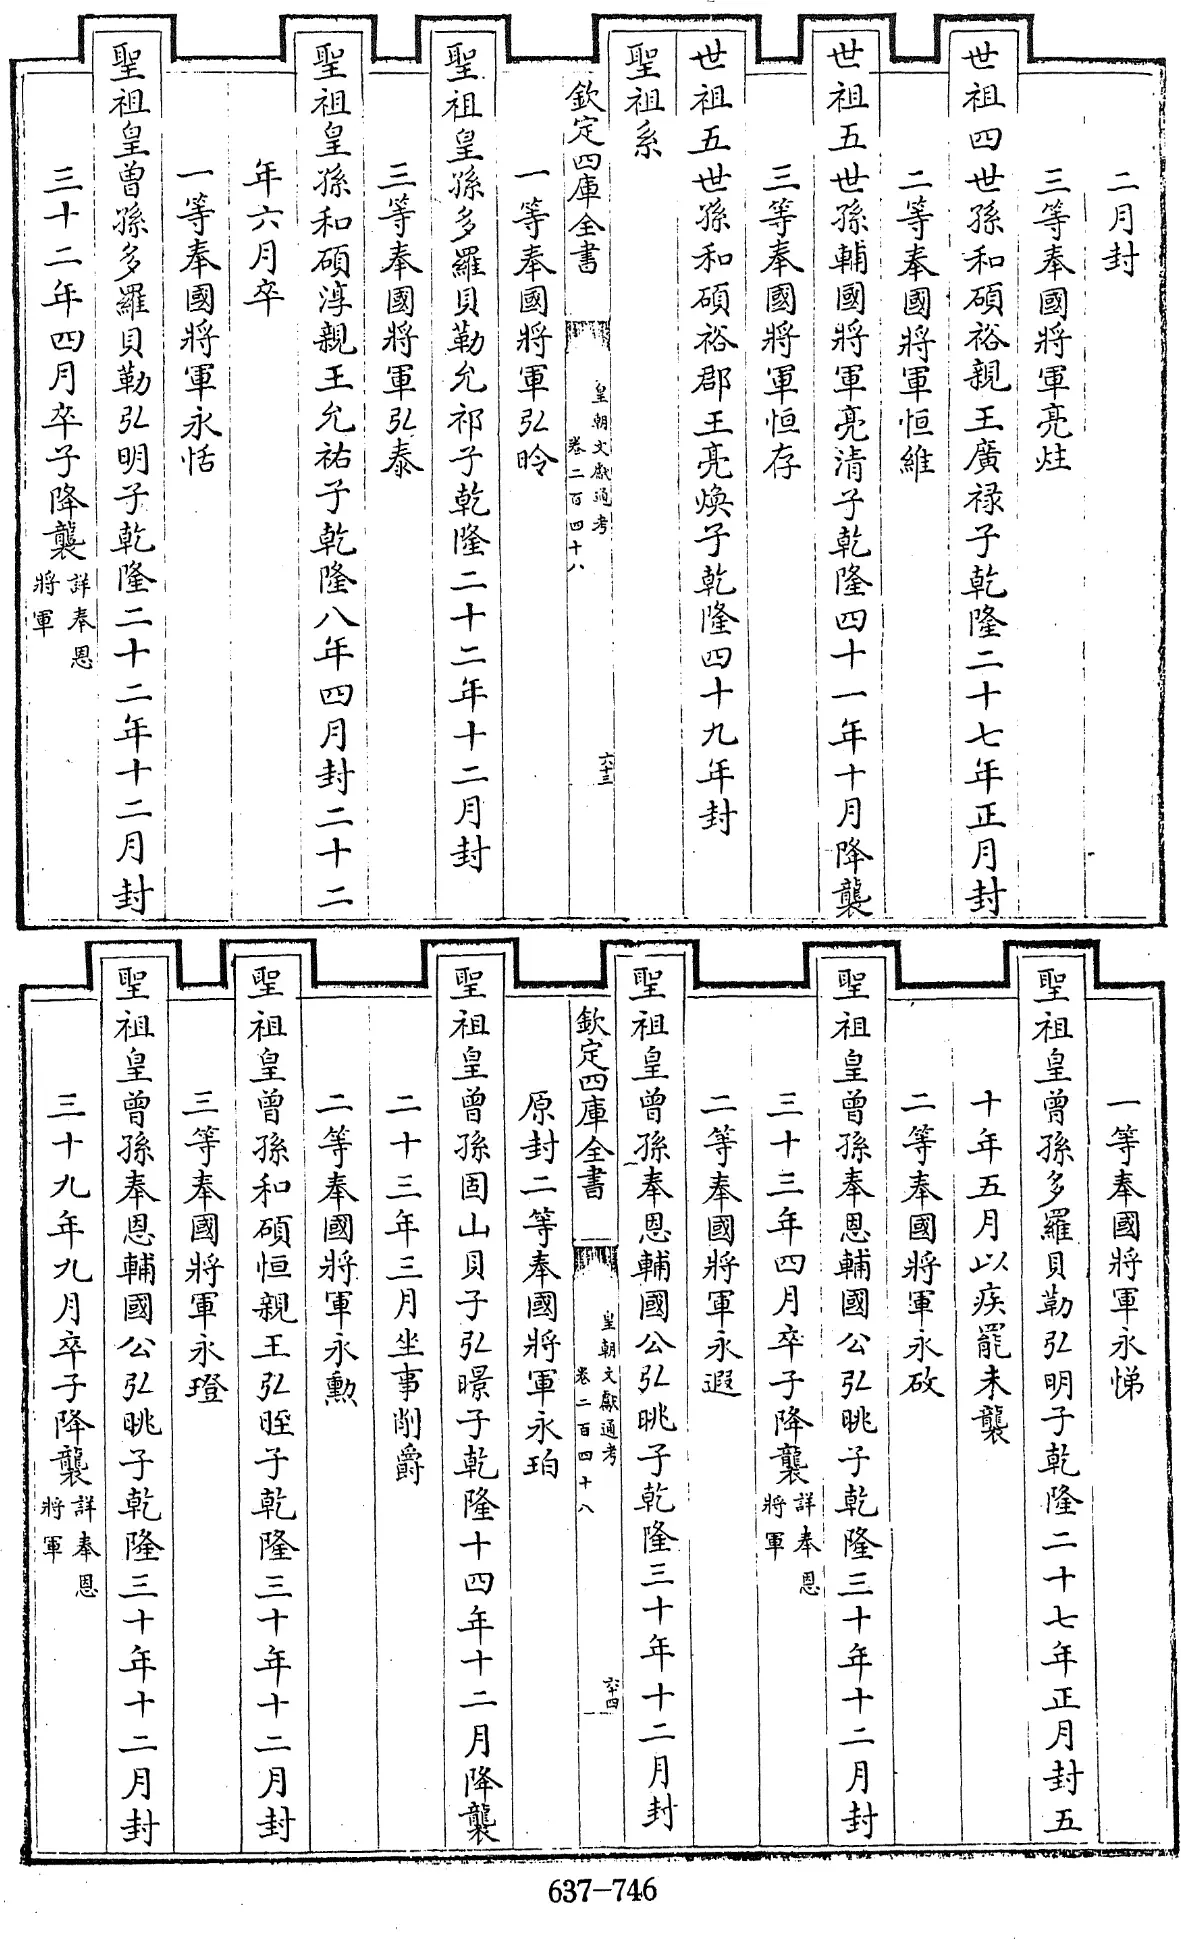 二月封
三等奉國將軍亮炷
世祖四世孫和碩裕親王廣祿子乾隆二十七年正月封
二等奉國將軍恒維
世祖五世孫輔國將軍亮清子乾隆四十一年十月降襲
三等奉國將軍恒存
世祖五世孫和碩裕郡王亮煥子乾隆四十九年封
聖祖系
欽定四庫全書
皇朝文獻通考
卷二百四十八
六十三
一等奉國將軍弘昤
聖祖皇孫多羅貝勒允祁子乾隆二十二年十二月封
三等奉國將軍弘泰
聖祖皇孫和碩淳親王允祐子乾隆八年四月封二十二
年六月卒
一等奉國將軍永恬
聖祖皇曾孫多羅貝勒弘明子乾隆二十二年十二月封
三十二年四月卒子降襲詳奉恩將軍
一等奉國將軍永悌
聖祖皇曾孫多羅貝勒弘明子乾隆二十七年正月封五
十年五月以疾罷未襲
二等奉國將軍永𢼄
聖祖皇曾孫奉恩輔國公弘晀子乾隆三十年十二月封
三十三年四月卒子降襲詳奉恩將軍
二等奉國將軍永遐
聖祖皇曾孫奉恩輔國公弘晀子乾隆三十年十二月封
欽定四庫全書
皇朝文獻通考
卷二百四十八
六十四
原封二等奉國將軍永珀
聖祖皇曾孫固山貝子弘暻子乾隆十四年十二月降襲
二十三年三月坐事削爵
二等奉國將軍永勳
聖祖皇曾孫和碩恒親王弘晊子乾隆三十年十二月封
三等奉國將軍永璒
聖祖皇曾孫奉恩輔國公弘晀子乾隆三十年十二月封
三十九年九月卒子降襲詳奉恩將軍
637-746